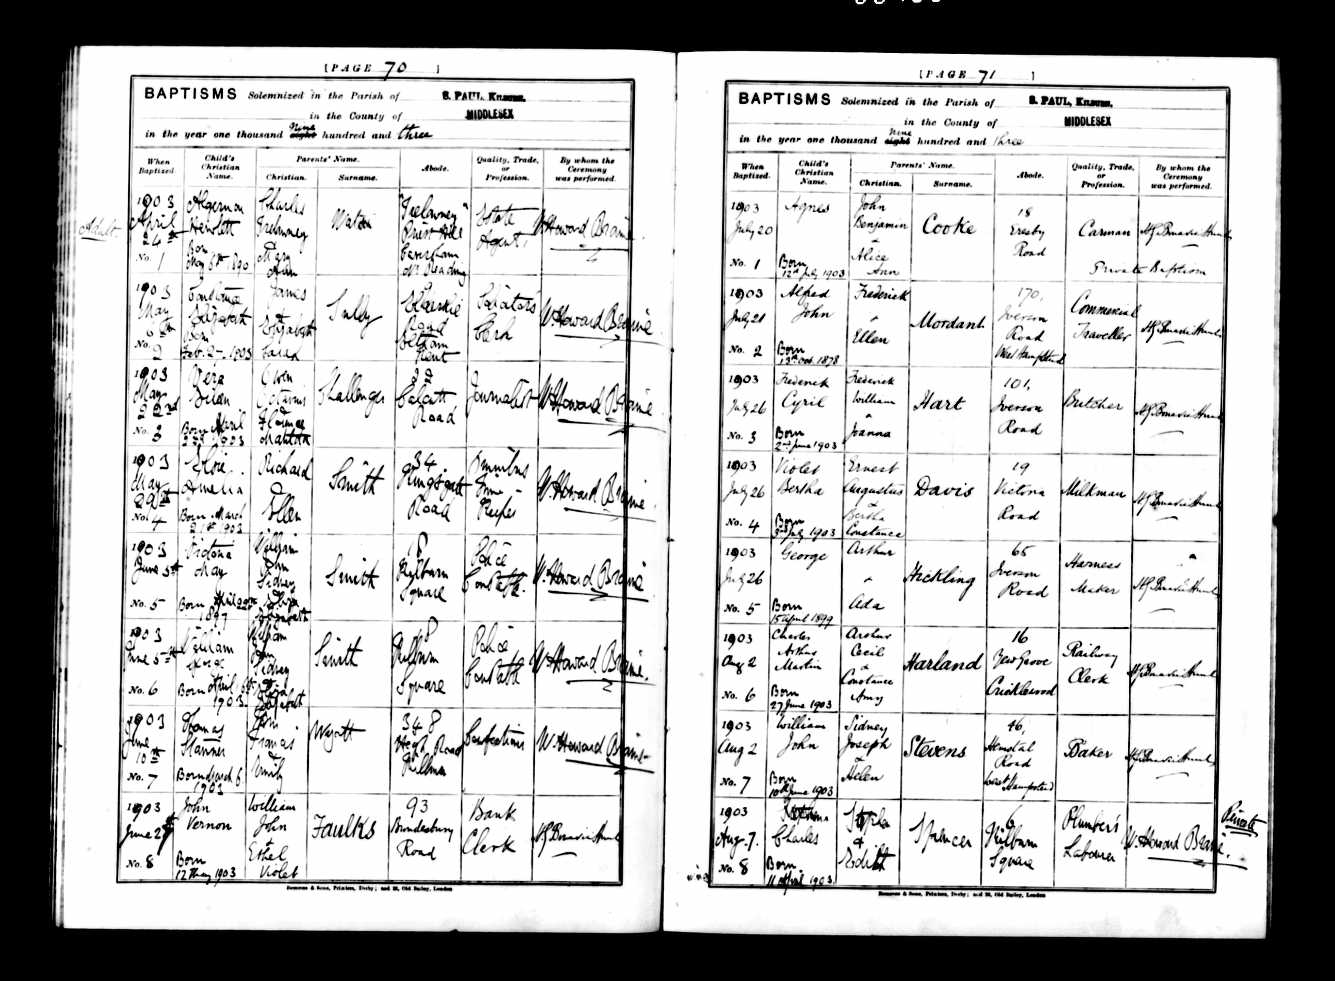 [PAGE 70 ]
BAPTISMS Solemnized in the Parish of S. PAUL, KILBURN.
in the County of MIDDLESEX
in the year one thousand eight Nine hundred and three
When Baptized.
Child's Christian Name.
Parents' Name.
Christian.
Surname.
Abode.
Quality, Trade, or Profession.
By whom the Ceremony was performed.
Adult
1903
April
24th
No. 1
Algernon
Hewlett
Born
May 6th 1890
Charles
Trelawney
&
Mary
Ann
"Trelawney"
Priest Hill
Caversham
Nr. Reading
Estate
Agent
W. Howard Braine.
1903
May
6th
No. 2
Constance
Elizabeth
Born
Feb. 2, 1903
James
&
Elizabeth
Sully
Road
Kent
Clerk
W. Howard Braine
1903
May
No. 3
Born April
1903
Owen
Octavius
&
Florence
Matilda
Challenger
Calcott
Road
Journalist
W. Howard Braine
1903
May
29th
No. 4
Elsie
Amelia
Born March
1903
Richard
&
Ellen
Smith
34
Kingsgate
Road
Omnibus
Time
Keeper
W. Howard Braine
1903
June 5th
No. 5
Victoria
May
Born
1897
William
John
Sidney
&
Elizabeth
Smith
8
Kilburn
Square
Police
Constable
W. Howard Braine
1903
June 5th
No. 6
William
George
Born April
1903
William
John
Sidney
&
Elizabeth
Smith
8
Kilburn
Square
Police
Constable
W. Howard Braine.
1903
June
10th
No. 7
Thomas
Born March 6
1903
Thomas
&
Emily
Wyatt
348
High Road
Kilburn
Confectioner
W. Howard Braine
1903
June 27
No. 8
John
Vernon
Born
12 May 1903
William
John
&
Ethel
Violet
Faulks
93
Brondesbury
Road
Bank
Clerk
Bonsons & Sons, Printers, Derby; and 23, Old Bailey, London
[PAGE 71 ]
BAPTISMS Solemnized in the Parish of S. PAUL, KILBURN.
in the County of MIDDLESEX
in the year one thousand eight Nine hundred and three
When Baptized.
Child's Christian Name.
Parents' Name.
Christian.
Surname.
Abode.
Quality, Trade, or Profession.
By whom the Ceremony was performed.
1903
July 20
No. 1
Agnes
Born
12th July 1903
John
Benjamin
&
Alice
Ann
Cooke
18
Eresby
Road
Carman
Private Baptism
1903
July 21
No. 2
Alfred
John
Born
13th Oct 1878
Frederick
&
Ellen
Mordant
170,
Iverson
Road
West Hampstead
Commercial
Traveller
1903
July 26
No. 3
Frederick
Cyril
Born
2nd June 1903
Frederick
William
&
Joanna
Hart
101,
Iverson
Road
Butcher
1903
July 26
No. 4
Violet
Bertha
Born
3rd July 1903
Ernest
Augustus
&
Bertha
Constance
Davis
19
Victoria
Road
Milkman
1903
July 26
No. 5
George
Born
15 April 1899
Arthur
&
Ada
Hickling
65
Iverson
Road
Harness
Maker
1903
Aug 2
No. 6
Charles
Arthur
Martin
Born
27 June 1903
Arthur
Cecil
&
Constance
Amy
Harland
16
Yew Grove
Cricklewood
Railway
Clerk
1903
Aug 2
No. 7
William
John
Born
10th June 1903
Sidney
Joseph
&
Helen
Stevens
46,
Hemstal
Road
West Hampstead
Baker
1903
Aug. 7.
No. 8
Charles
Born
11 April 1903
&
Edith
Spencer
6
Kilburn
Square
Plumber's
Labourer
W. Howard Braine.
Private